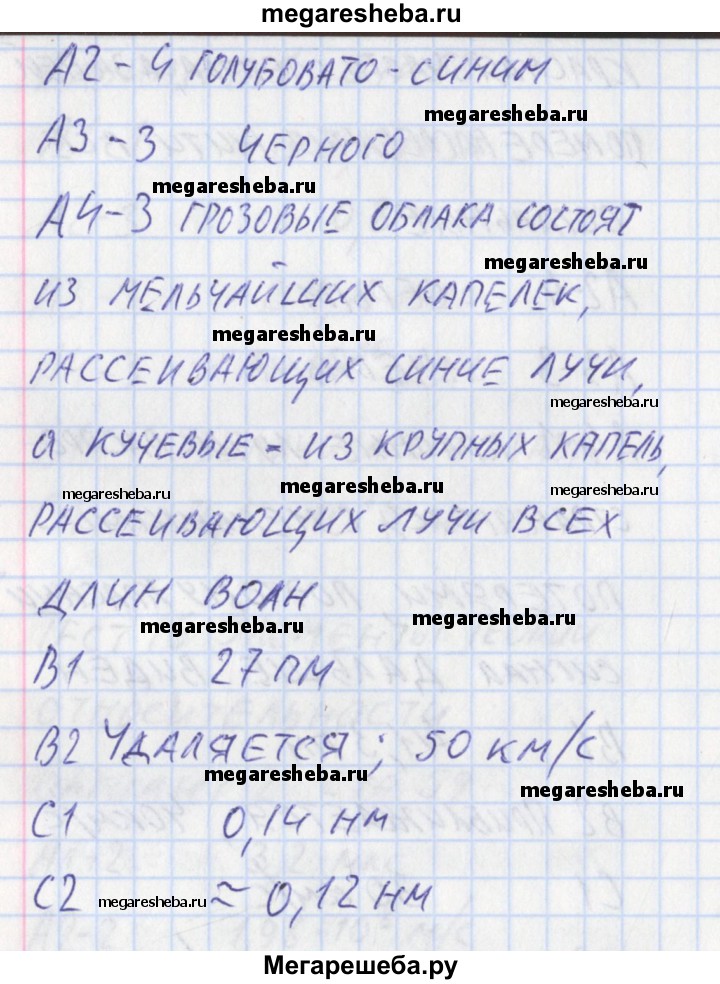 megaresheba.ru
А2-4 ГОЛУБОВАТО-СИНИМ
megaresheba.ru
А3-3 ЧЕРНОГО
megaresheba.ru
А4-3 ГРОЗОВЫЕ ОБЛАКА СОСТОЯТ
megaresheba.ru
ИЗ МЕЛЬЧАЙШИХ КАПЕЛЕК,
megaresheba.ru
РАССЕИВАЮЩИХ СИНИЕ ЛУЧИ,
megaresheba.ru
а КУЧЕВЫЕ - ИЗ КРУПНЫХ КАПЕЛЬ,
megaresheba.ru megaresheba.ru megaresheba.ru
РАССЕИВАЮЩИХ ЛУЧИ ВСЕХ
ДЛИН ВОЛН
megaresheba.ru megaresheba.ru
В1 27 ПМ
В2 УДАЛЯЕТСЯ; 50 КМ/С
megaresheba.ru megaresheba.ru
С1 0,14 НМ
С2 megaresheba.ru ≈ 0,12 НМ
Мегарешеба.ру